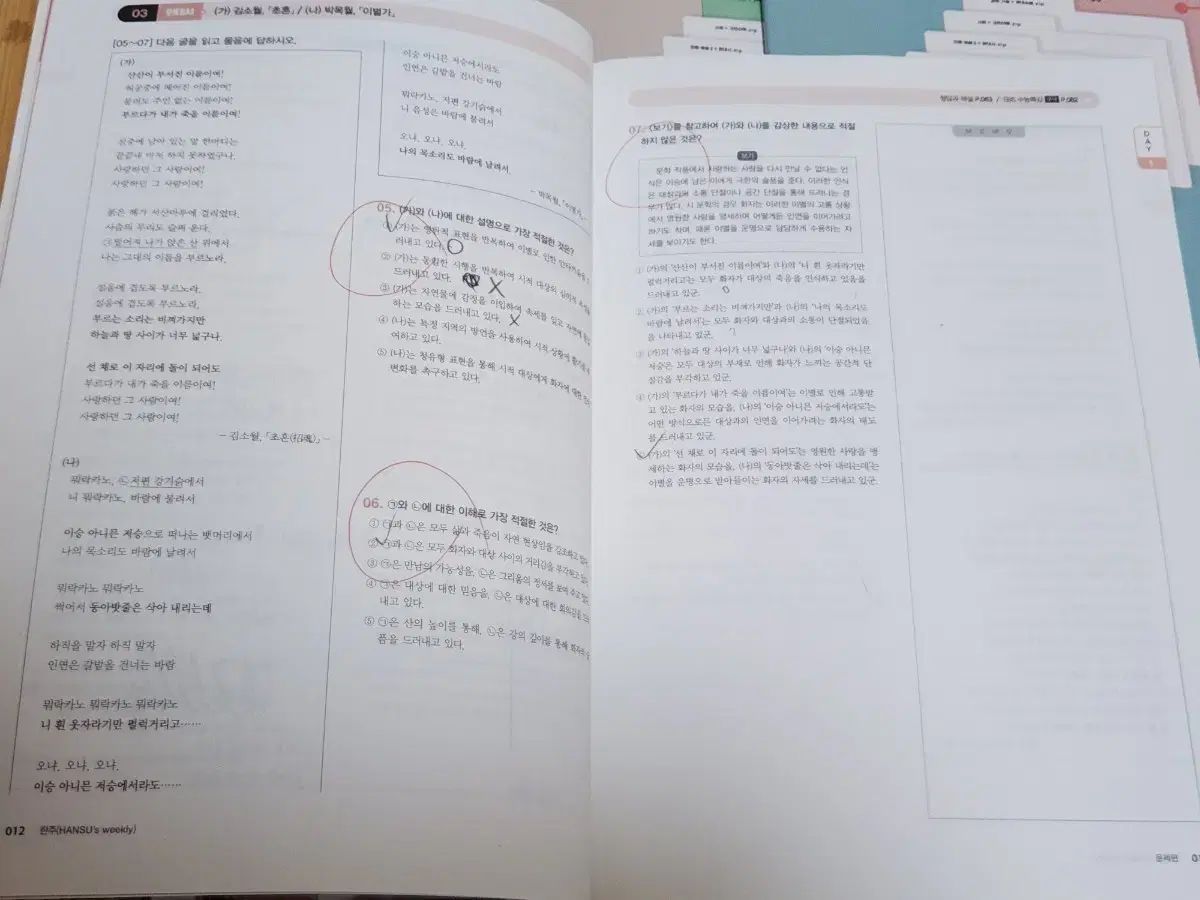 03 (가) 김소월, 「초혼」 / (나) 박목월, 「이별가」
[05~07] 다음 글을 읽고 물음에 답하시오.
(가)
산산이 부서진 이름이여!
허공중에 헤어진 이름이여!
불러도 주인 없는 이름이여!
부르다가 내가 죽을 이름이여!
심중에 남아 있는 말 한마디는
끝끝내 마저 하지 못하였구나.
사랑하던 그 사람이여!
사랑하던 그 사람이여!
붉은 해가 서산마루에 걸리었다.
사슴의 무리도 슬피 운다.
㉠떨어져 나가 앉은 산 위에서
나는 그대의 이름을 부르노라.
설움에 겹도록 부르노라.
설움에 겹도록 부르노라.
부르는 소리는 비껴가지만
하늘과 땅 사이가 너무 넓구나.
선 채로 이 자리에 돌이 되어도
부르다가 내가 죽을 이름이여!
사랑하던 그 사람이여!
사랑하던 그 사람이여!
- 김소월, 「초혼(招魂)」 -
(나)
뭐락카노, ㉡저편 강기슭에서
니 뭐락카노, 바람에 불려서
이승 아니믄 저승으로 떠나는 뱃머리에서
나의 목소리도 바람에 날려서
뭐락카노 뭐락카노
썩어서 동아밧줄은 삭아 내리는데
하직을 말자 하직 말자
인연은 갈밭을 건너는 바람
뭐락카노 뭐락카노 뭐락카노
니 흰 옷자라기만 펄럭거리고……
오냐. 오냐. 오냐.
이승 아니믄 저승에서라도……
012 한주(HANSU's weekly)
이승 아니믄 저승에서라도
인연은 갈밭을 건너는 바람
뭐락카노, 저편 강기슭에서
니 음성은 바람에 불려서
오냐. 오냐. 오냐.
나의 목소리도 바람에 날려서.
- 박목월, 「이별가」 -
05. (가)와 (나)에 대한 설명으로 가장 적절한 것은?
① (가)는 영탄적 표현을 반복하여 이별로 인한 안타까움을
러내고 있다.
② (가)는 동일한 시행을 반복하여 시적 대상의 심리적
드러내고 있다.
③ (가)는 자연물에 감정을 이입하여 속세를 잊고 자연에
하는 모습을 드러내고 있다.
④ (나)는 특정 지역의 방언을 사용하여 시적 상황에
여하고 있다.
⑤ (나)는 청유형 표현을 통해 시적 대상에게 화자에 대한
변화를 촉구하고 있다.
06. ㉠와 ㉡에 대한 이해로 가장 적절한 것은?
① ㉠과 ㉡은 모두 삶과 죽음이 자연 현상임을 강조하고 있다.
② ㉠과 ㉡은 모두 화자와 대상 사이의 거리감을 부각하고 있다.
③ ㉠은 만남의 가능성을, ㉡은 그리움의 정서를 보여 주고 있다.
④ ㉠은 대상에 대한 믿음을, ㉡은 대상에 대한 회의감을
내고 있다.
⑤ ㉠은 산의 높이를 통해, ㉡은 강의 깊이를 통해 화자의
픔을 드러내고 있다.
DAY
07. <보기>를 참고하여 (가)와 (나)를 감상한 내용으로 적절
하지 않은 것은?
보기
문학 작품에서 사랑하는 사람을 다시 만날 수 없다는 인
식은 이승에 남은 이에게 극한의 슬픔을 준다. 이러한 인식
은 대상과의 소통 단절이나 공간 단절을 통해 드러나는 경
우가 많다. 시 문학의 경우 화자는 이러한 이별의 고통 상황
에서 영원한 사랑을 맹세하며 어떻게든 인연을 이어가려고
하기도 하며, 때론 이별을 운명으로 담담하게 수용하는 자
세를 보이기도 한다.
① (가)의 '산산이 부서진 이름이여'와 (나)의 '니 흰 옷자라기만
펄럭거리고'는 모두 화자가 대상의 죽음을 인식하고 있음을
드러내고 있군.
② (가)의 '부르는 소리는 비껴가지만'과 (나)의 '나의 목소리도
바람에 날려서'는 모두 화자와 대상과의 소통이 단절되었음
을 나타내고 있군.
③ (가)의 '하늘과 땅 사이가 너무 넓구나'와 (나)의 '이승 아니믄
저승'은 모두 대상의 부재로 인해 화자가 느끼는 공간적 단
절감을 부각하고 있군.
④ (가)의 '부르다가 내가 죽을 이름이여'는 이별로 인해 고통받
고 있는 화자의 모습을, (나)의 '이승 아니믄 저승에서라도'는
어떤 방식으로든 대상과의 인연을 이어가려는 화자의 태도
를 드러내고 있군.
⑤ (가)의 '선 채로 이 자리에 돌이 되어도'는 영원한 사랑을 맹
세하는 화자의 모습을, (나)의 '동아밧줄은 삭아 내리는데'는
이별을 운명으로 받아들이는 화자의 자세를 드러내고 있군.
문학편